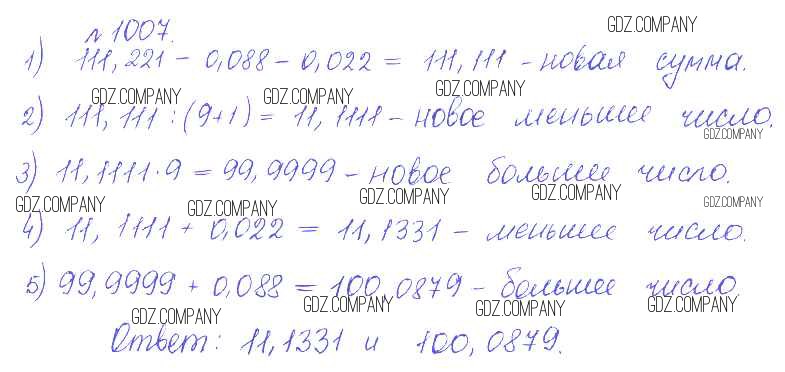 GDZ.COMPANY
№ 1007.
1) 111,221 - 0,088 - 0,022 = 111,111 - новая сумма.
GDZ.COMPANY GDZ.COMPANY GDZ.COMPANY
2) 111,111 : (9+1) = 11,1111 - новое меньшее число.
GDZ.COMPANY
3) 11,1111 · 9 = 99,9999 - новое большее число.
GDZ.COMPANY GDZ.COMPANY GDZ.COMPANY GDZ.COMPANY GDZ.COMPANY
4) 11,1111 + 0,022 = 11,1331 - меньшее число.
5) 99,9999 + 0,088 = 100,0879 - большее число
GDZ.COMPANY GDZ.COMPANY GDZ.COMPANY GDZ.COMPANY
Ответ: 11,1331 и 100,0879.